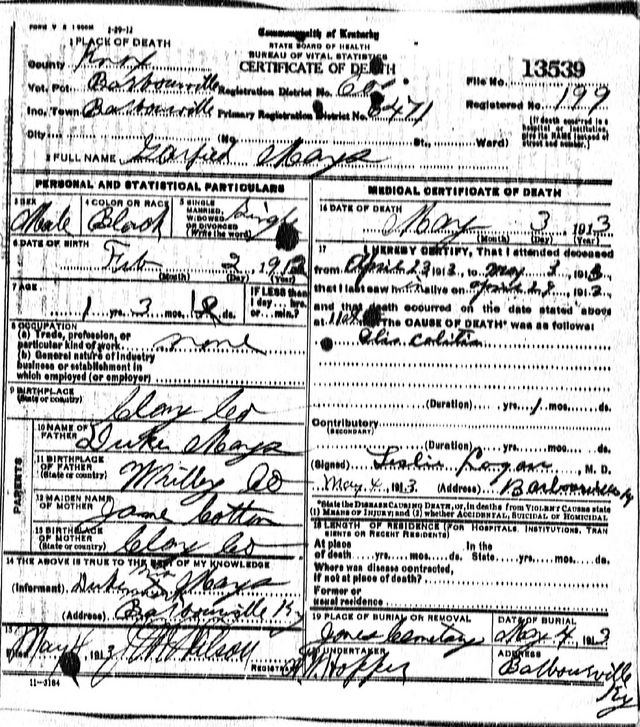 FORM V S 1 500M 1-29-12
Commonwealth of Kentucky
STATE BOARD OF HEALTH
BUREAU OF VITAL STATISTICS
CERTIFICATE OF DEATH
1 PLACE OF DEATH
County Knox
Vot. Pct. Barbourville Registration District No.
File No. 13539
Inc. Town Barbourville Primary Registration District No. 6471
Registered No. 199
(If death occurred in a hospital or institution, give its NAME instead of street and number.)
City (No. St., Ward)
2 FULL NAME Garfield Mays
PERSONAL AND STATISTICAL PARTICULARS
3 SEX Male
4 COLOR OR RACE Black
5 SINGLE MARRIED, WIDOWED OR DIVORCED (Write the word) Single
6 DATE OF BIRTH
Feb 2, 191
(Month) (Day) (Year)
7 AGE
1 yrs. 3 mos. ds.
IF LESS than 1 day hrs. or min.?
8 OCCUPATION
(a) Trade, profession, or particular kind of work none
(b) General nature of industry business or establishment in which employed (or employer)
9 BIRTHPLACE
(State or country) Clay Co
PARENTS
10 NAME OF FATHER Duke Mays
11 BIRTHPLACE OF FATHER (State or country) Whitley Co
12 MAIDEN NAME OF MOTHER Jane Cotton
13 BIRTHPLACE OF MOTHER (State or country) Clay Co
14 THE ABOVE IS TRUE TO THE BEST OF MY KNOWLEDGE
(Informant) Duke Mays
(Address) Barbourville Ky
15
Filed May 1913
REGISTRAR
11-3184
MEDICAL CERTIFICATE OF DEATH
16 DATE OF DEATH May 3 1913
(Month) (Day) (Year)
17 I HEREBY CERTIFY, That I attended deceased
from April 23 1913, to May 3, 1913
that I last saw him alive on April 29, 1913
and that death occurred on the date stated above
at m. The CAUSE OF DEATH* was as follows:
colitis
(Duration) yrs. 1 mos. ds.
Contributory
(SECONDARY)
(Duration) yrs. mos. ds.
(Signed) Leslie Logan, M. D.
May 4, 1913 (Address) Barbourville Ky
*State the DISEASE CAUSING DEATH, or, in deaths from VIOLENT CAUSES state
(1) MEANS OF INJURY; and (2) whether ACCIDENTAL, SUICIDAL or HOMICIDAL
18 LENGTH OF RESIDENCE (FOR HOSPITALS, INSTITUTIONS, TRANSIENTS OR RECENT RESIDENTS)
At place of death yrs. mos. ds. In the State yrs. mos. ds.
Where was disease contracted,
if not at place of death?
Former or
usual residence
19 PLACE OF BURIAL OR REMOVAL
Jones Cemetery
DATE OF BURIAL
May 4, 1913
20 UNDERTAKER
Hopper
ADDRESS
Barbourville
Ky